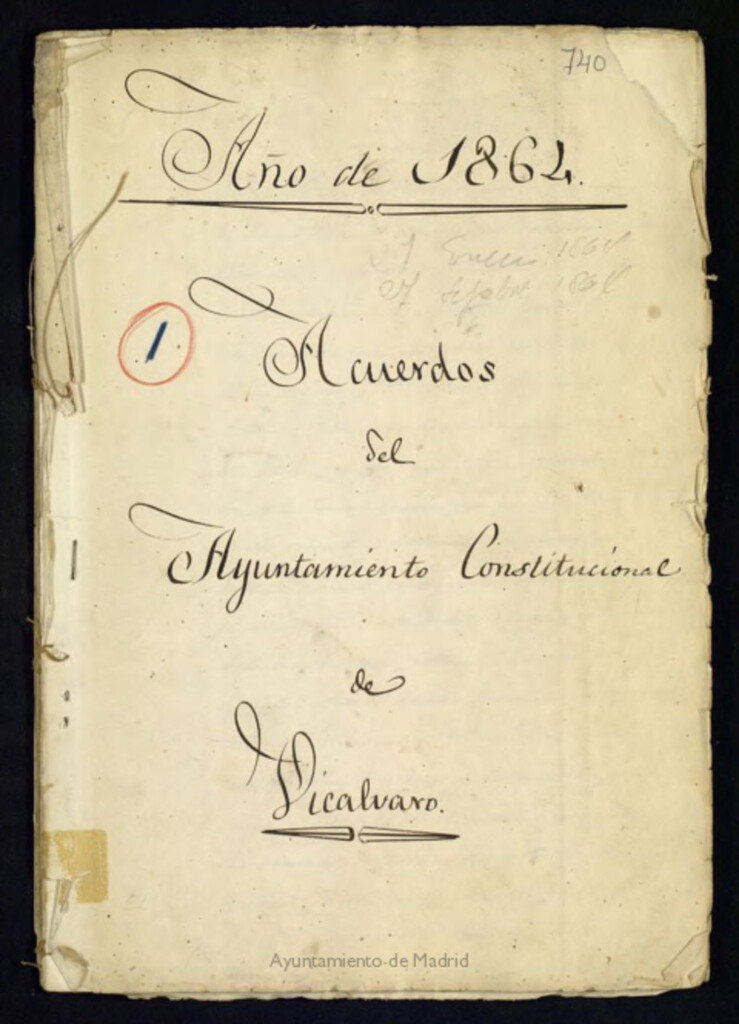 740
Año de 1864.
27 Enero 1864
27 Sepbre 1864
1
Acuerdos
del
Ayuntamiento Constitucional
de
Vicalvaro.
Ayuntamiento de Madrid